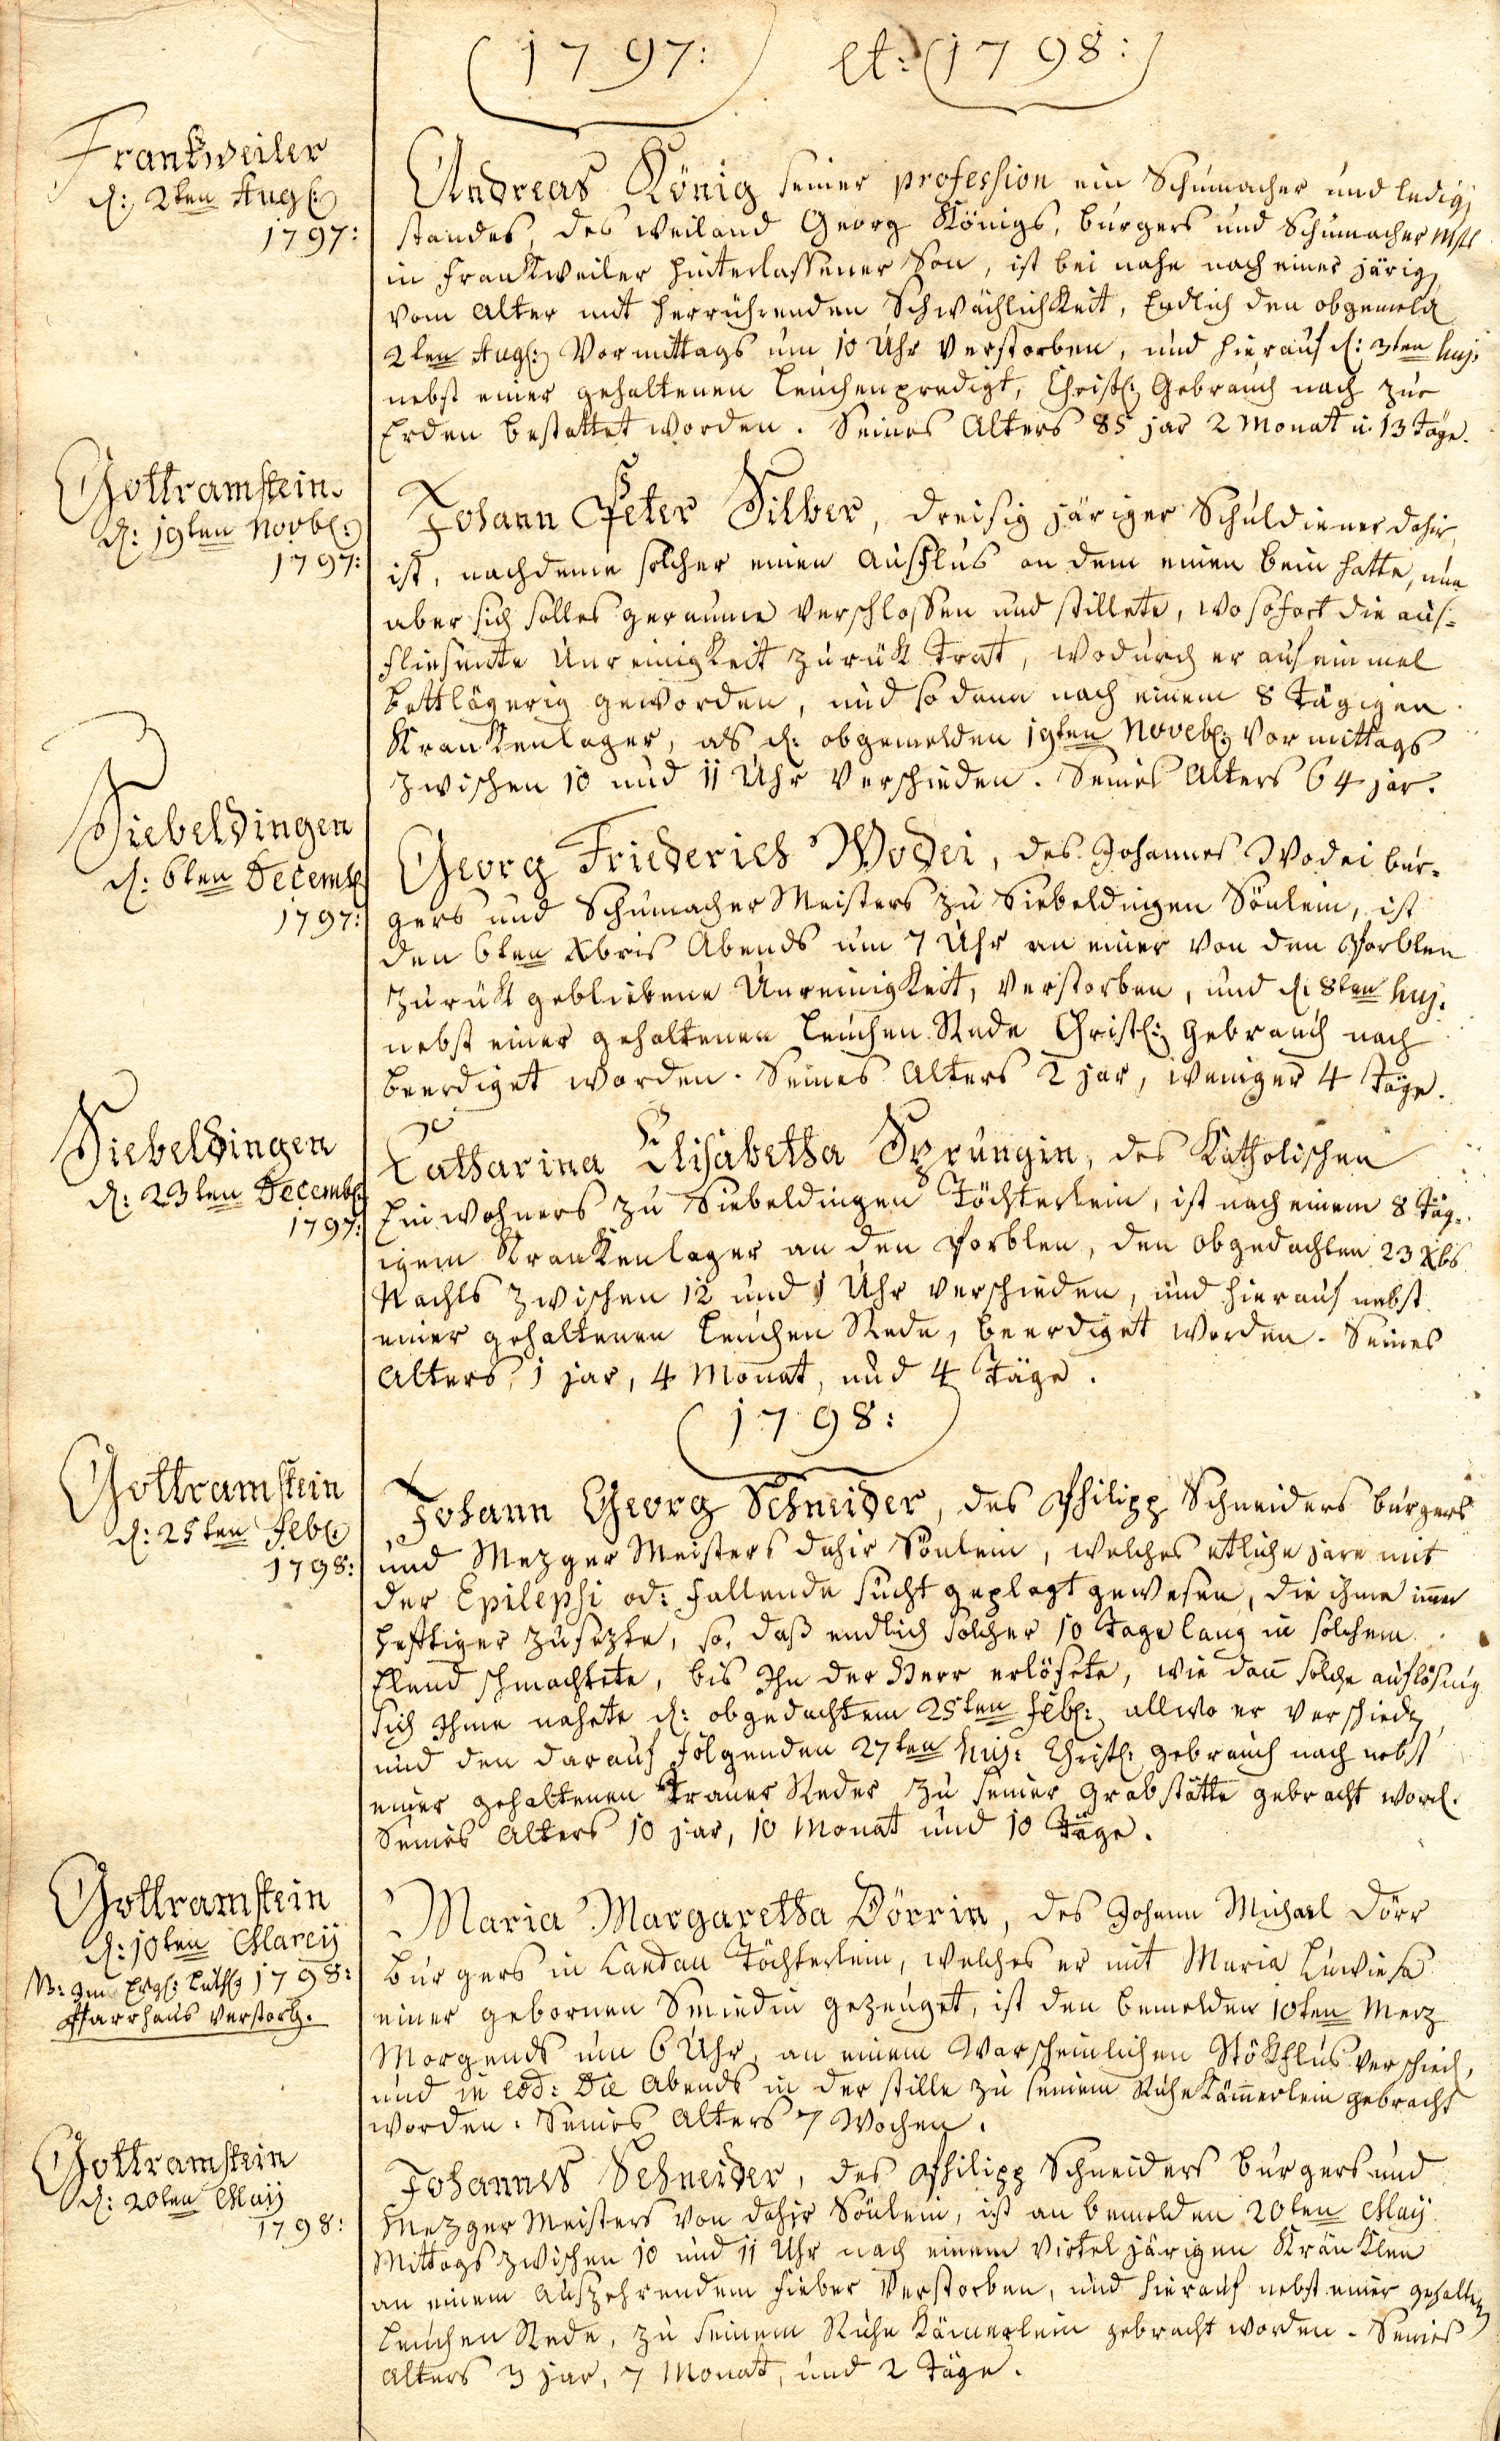 1797: et: 1798:
Frankweiler
d: 2ten Aug:
1797:
Andreas König seiner profession ein Schumacher und ledig
standes, des weiland Georg Königs, burgers und Schumacher Mstr
in Frankweiler hinterlassener Son, ist bei nahe nach einer järig
vom Alter mit herrührenden Schwächlichkeit, Endlich den obgemeld
2ten Aug: Vormittags um 10 Uhr verstorben, und hierauf d: 3ten huj.
nebst einer gehaltenen Leuchenpredigt, Christl: Gebrauch nach zur
Erden bestattet worden. Seines Alters 85 jar 2 Monat u 13 Täge.
Gottramstein.
d: 19ten Novb:
1797:
Johann Peter Silber, dreisig järiger Schuldiener dahir,
ist, nachdeme solcher einen Ausflus an dem einen bein hatte, nun
aber sich solles geraume verschlossen und stillete, wo sofort die aus-
fliesente Unreinigkeit zurük trat, wodurch er auf einmal
bettlägerig geworden, und so dann nach einem 8 Tägigen
Krankenlager, als d: obgemelden 19ten Noveb: Vormittags
zwischen 10 und 11 Uhr verschieden. Seines Alters 64 jar.
Siebeldingen
d: 6ten Decemb
1797:
Georg Friederich Wodei, des Johannes Wodei bur-
gers und Schumacher Meisters zu Siebeldingen Sönlein, ist
den 6ten Xbris Abends um 7 Uhr an einer von den Porblen
zurükgebliebene Unreinigkeit, verstorben, und d: 8ten huj.
nebst einer gehaltenen Leuchen Rede Christl: Gebrauch nach
beerdiget worden. Seines Alters 2 jar, weniger 4 Täge.
Siebeldingen
d: 23ten Decemb:
1797:
Catharina Elisabetha Sprüngin, des Katholischen
Einwohners zu Siebeldingen Töchterlein, ist nach einem 8 Täg-
igem Krankenlager an den Porblen, den obgedachten 23 Xbs
Nachts zwischen 12 und 1 Uhr verschieden, und hierauf nebst
einer gehaltenen Leuchen Rede, beerdiget worden. Seines
Alters, 1 jar, 4 Monat, und 4 Täge.
1798:
Gottramstein
d: 25ten Feb:
1798:
Johann Georg Schneider, des Philipp Schneiders burgers
und Mezger Meisters dahir Sönlein, welches etliche jare mit
der Epilepsi od: fallende sucht geplagt gewesen, die ihme immer
heftiger zusezte, so, daß endlich solcher 10 Tage lang in solchem
Elend schmachtete, bis Ihn der Herr erlösete, wie dann solche auflösung
sich Ihme nahete d: obgedachtem 25ten Feb: allwo er verschied,
und den darauf folgenden 27ten huj: Christl: gebrauch nach nebst
einer gehaltenen Trauer Reder zu seiner grabstätte gebracht word.
Seines Alters 10 jar, 10 Monat und 10 Täge.
Gottramstein
d: 10ten Marcij
NB: Im Evgl: Luth: 1798:
Pfarrhaus verstorb.
Maria Margaretha Dörrin, des Johann Michael Dörr
burgers in Landau Töchterlein, welches er mit Maria Luwiesa
einer gebornen Smiedin gezeuget, ist den bemelden 10ten Merz
Morgends um 6 Uhr, an einem Warscheinlichen Stökflus verschied,
und in eod: Die Abends in der stille zu seinem Ruhe Kämmerlein gebracht
worden. Seines Alters 7 Wochen.
Gottramstein
d: 20ten Maij
1798:
Johannes Schneider, des Philipp Schneiders burgers und
Mezger Meisters von dahir Sönlein, ist an bemelden 20ten May
Mittags zwischen 10 und 11 Uhr nach einem virteljärigen Kränklen
an einem Auszehrendem Fieber verstorben, und hierauf nebst einer gehalten
Leuchen Rede, zu seinem Ruhe Kämerlein gebracht worden. Seines
Alters 3 jar, 7 Monat, und 2 Täge.